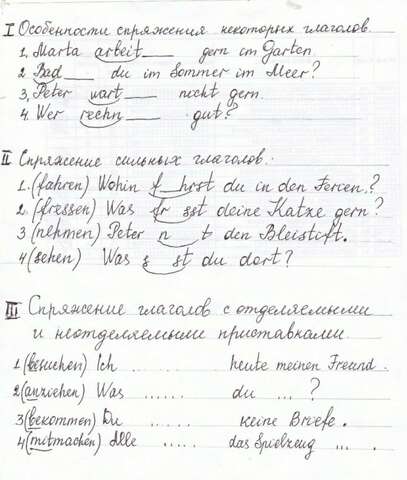 I Особенности спряжения некоторых глаголов.
1. Marta arbeit___ gern im Garten.
2. Bad___ du im Sommer im Meer?
3. Peter wart ___ nicht gern.
4. Wer rechn ___ gut?
II Спряжение сильных глаголов.
1. (fahren) Wohin f_hrst du in den Ferien?
2. (fressen) Was fr sst deine Katze gern?
3 (nehmen) Peter n t den Bleistift.
4 (sehen) Was s st du dort?
III Спряжение глаголов с отделяемыми
и неотделяемыми приставками
1 (besuchen) Ich heute meinen Freund.
2 (anziehen) Was ...... du ... ?
3 (bekommen) Du ...... keine Briefe.
4 (mitmachen) Alle ..... das Spielzeug ... .